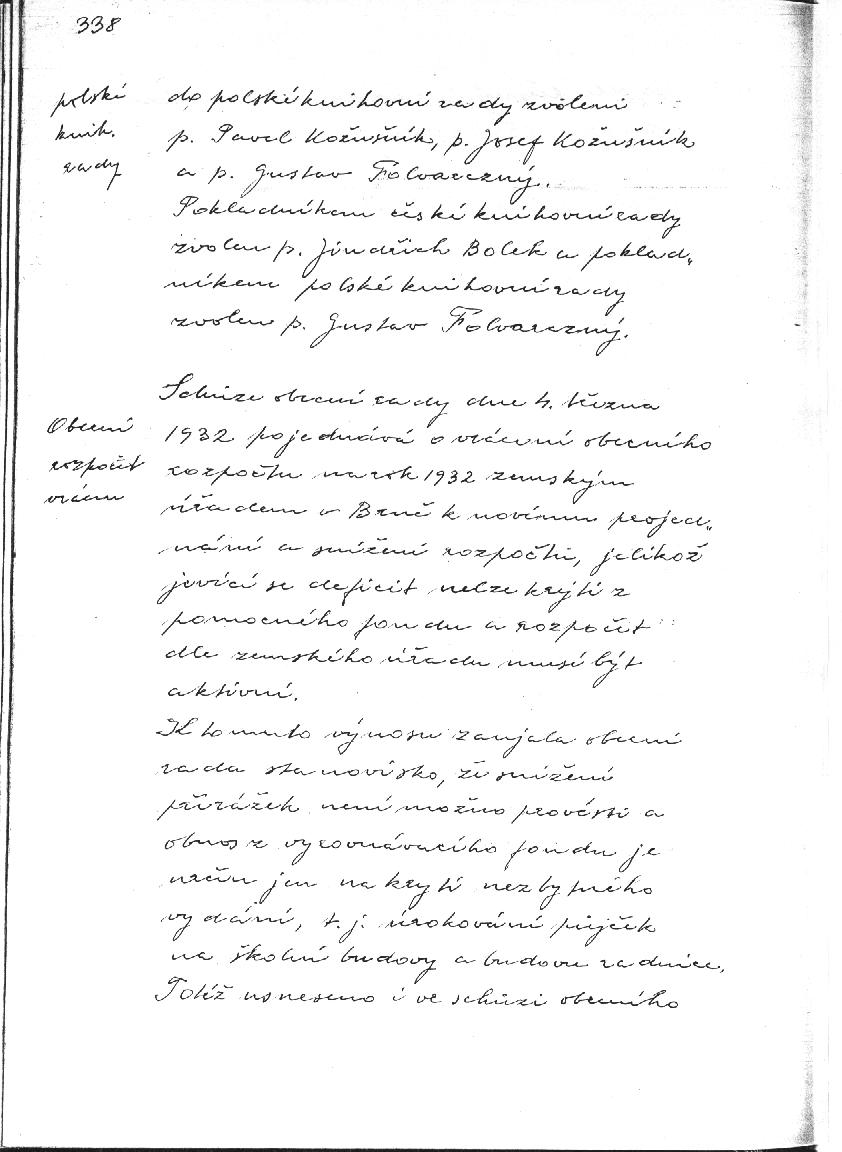 338
polské
knih.
rady
do polské knihovní rady zvoleni
p. Pavel Kožušník, p. Josef Kožušník
a p. Gustav Folvarczný.
Pokladníkem české knihovní rady
zvolen p. Jindřich Bolek a poklad„
níkem polské knihovní rady
zvolen p. Gustav Folvarczný.
Obecní
rozpočet
vrácen
Schůze obecní rady dne 4. března
1932 pojednává o vrácení obecního
rozpočtu na rok 1932 zemským
úřadem v Brně k novému projed„
nání a snížení rozpočtu, jelikož
jevící se deficit nelze krýti z
pomocného fondu a rozpočet
dle zemského úřadu musí být
aktivní.
K tomuto výnosu zaujala obecní
rada stanovisko, že snížení
přirážek není možno provésti a
obnos z vyrovnávacího fondu je
určen jen na krytí nezbytného
vydání, t. j. úrokování půjček
na školní budovy a budovu radnice.
Totéž usneseno i ve schůzi obecního